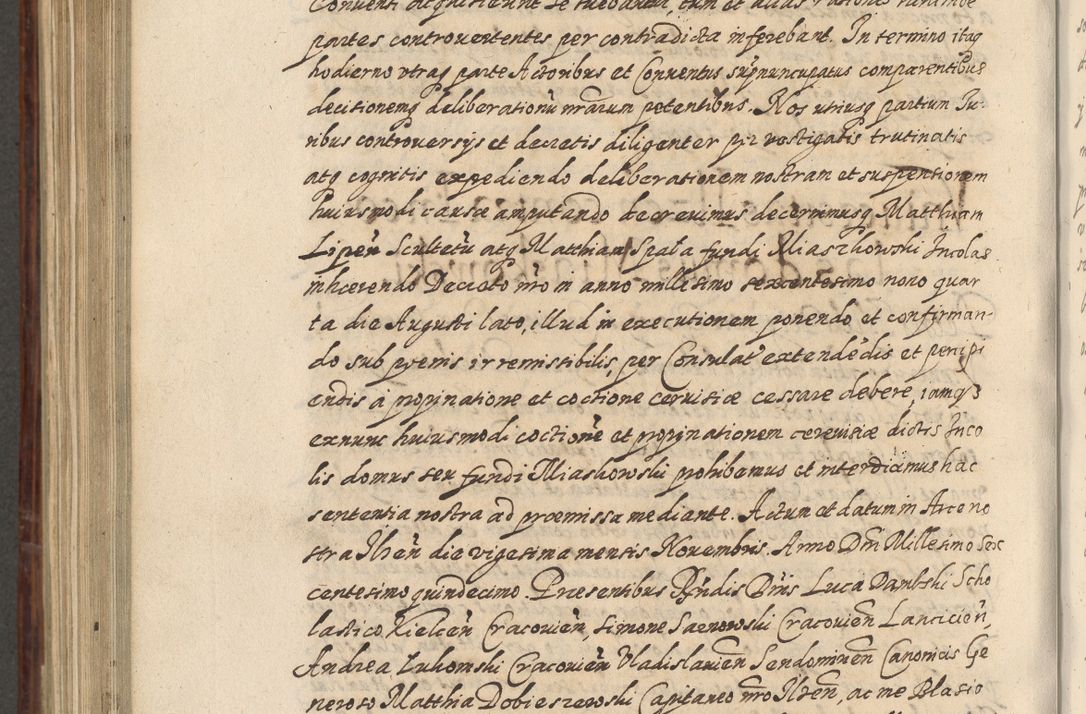 Conventi acquisierunt se tuebantur, tum et alias rationes
partes controuertentes per contradicta inferebant. In termino itaq
hodierno vtraq parte Actoribus et Conventus supnuncupatus comparentibus
decisionemq deliberationū nrārum petentibus. Nos utriusq partium Iu-
ribus controuersys et decretis diligenter per vestigatis trutinatis
atq cognitis expediendo deliberationem nostram et suspensionem
huiusmodi causæ amputando decreuimus decernimusq Matthiam
Lipen̄ Scultetū atq Matthiam Spała fundi Miaszkowski Incolas
inhærendo Decreto nrō in anno millesimo sexcentesimo nono quar
ta die Augusti lato, illud in executionem ponendo et confirman-
do sub pœnis irremissibilis, per Consulat extendēdis et percipi
endis a propinatione et coctione ceruisiæ cessare debere, iamq3
exnunc huiusmodi coctionē et propinationem cereuisiæ dictis Inco
lis domus seu fundi Miaskowski prohibemus et interdicimus hac
sententia nostra ad præmissa mediante. Actum et datum in Arce no
stra Ilzen̄ die vigesima mensis Nouembris. Anno Dn̄i Millesimo Sex
centesimo quindecimo. Præsentibus Rn̄dis Dn̄is Luca Dambski Scho
lastico Kielcen̄ Cracouien̄, Simone Cracouien̄ Lancicien̄,
Andrea Łukomski Cracouien̄ Vladislauien̄ Sendomirien̄ Canonicis Ge
neroso Matthia Dobieszewski Capitaneo nrō Ilzen̄, ac me Blasio